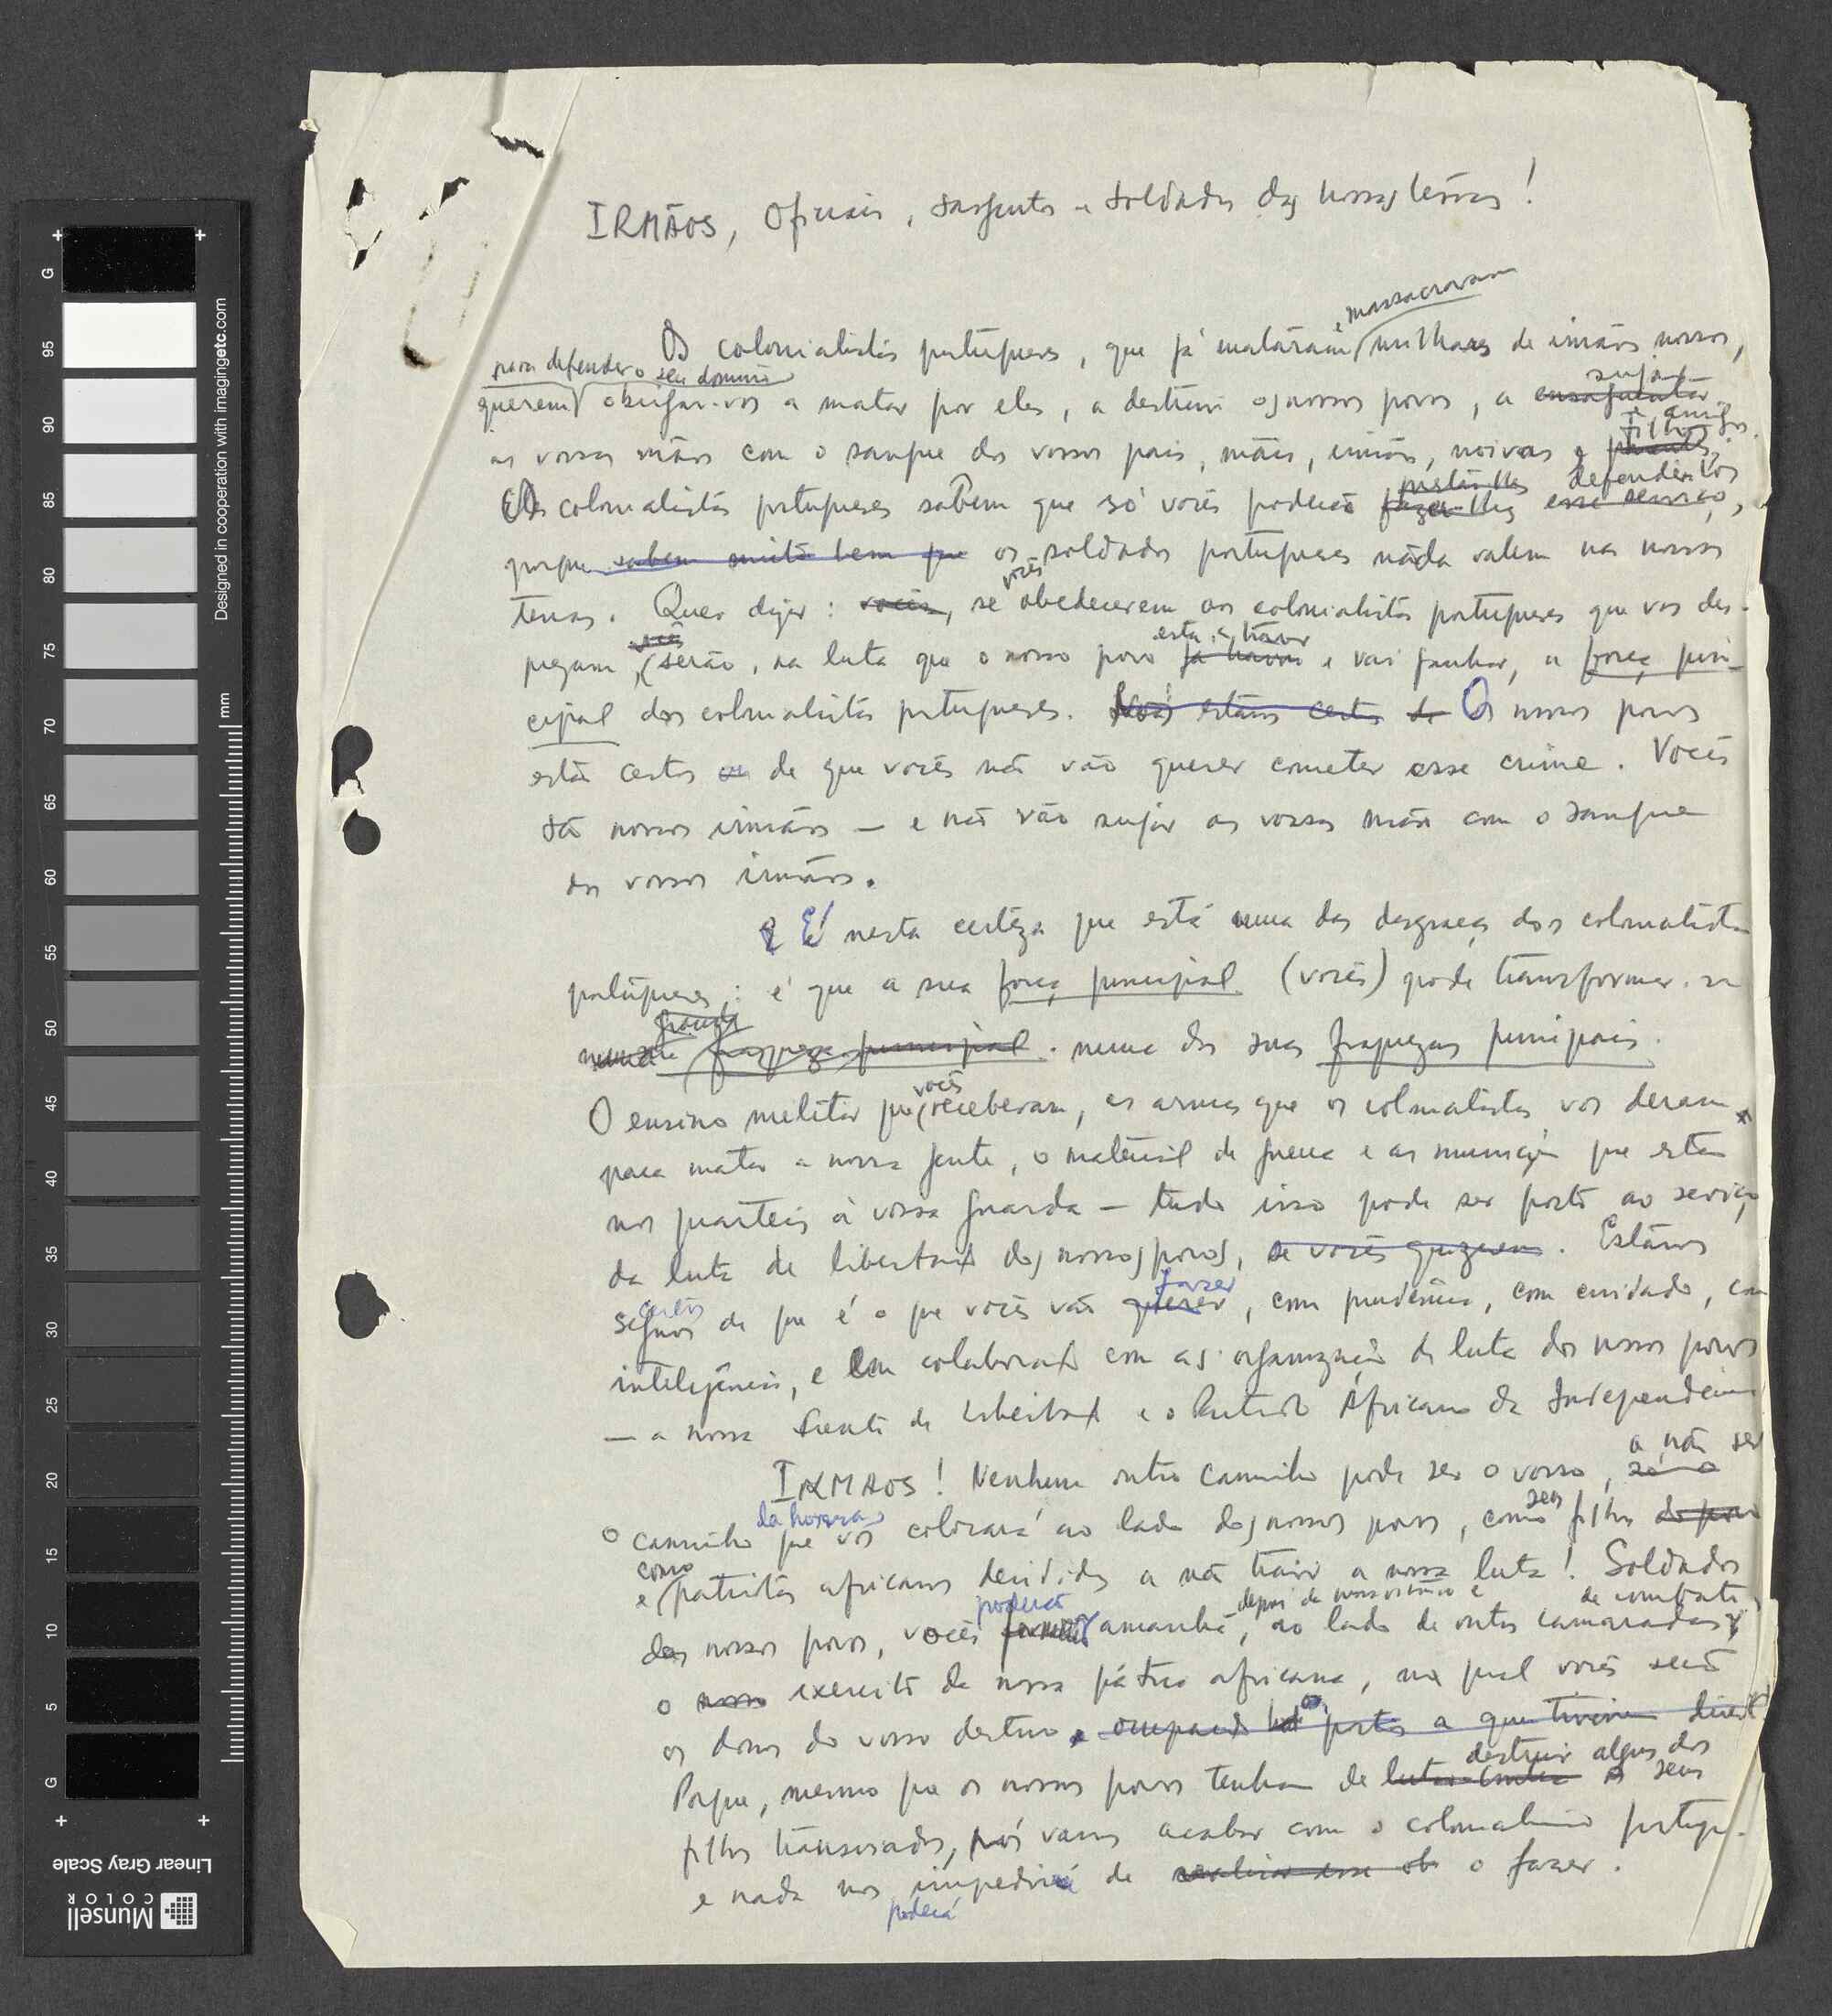 IRMÃOS, Oficiais, sargentos e soldados das nossas terras!
e massacraram
Os colonialistas portugueses, que já mataram milhares de irmãos nossos,
para defender o seu domínio
querem obrigar-vos a matar por eles, a destruir os nossos povos, a ensaguentar
sujar
as vossas mãos com o sangue dos vossos pais, mães, irmãos, noivas e parentes,
filhos e amigos.
Os colonialistas portugueses sabem que só vocês poderão fazer-lhes esse serviço,
defendê-los
porque sabem muito bem que os soldados portugueses nada valem nas nossas
terras. Quer dizer: vocês, se vocês obedecerem aos colonialistas portugueses que vos des-
vocês
está a travar
prezam, serão, na luta que o nosso povo já travou e vai ganhar, a força prin-
cipal dos colonialistas portugueses. Nós estamos certos de Os nossos povos
estão certos de que vocês não vão querer cometer esse crime. Vocês
são nossos irmãos — e não vão sujar as vossas mãos com o sangue
dos vossos irmãos.
É nesta certeza que está uma das desgraças dos colonialistas
portugueses: é que a sua força principal (vocês) pode transformar-se
grande
numa fraqueza principal. numa das suas fraquezas principais.
O ensino militar que vocês receberam, as armas que os colonialistas vos deram
para matar a nossa gente, o material de guerra e as munições que estão
nos quarteis à vossa guarda — tudo isso pode ser posto ao serviço
da luta de libertação dos nossos povos, se vocês quizerem. Estamos
certos
fazer
seguros de que é o que vocês vão querer, com prudência, com cuidado, com
inteligência, e em colaboração com as organizações de luta dos nossos povos
— a nossa Frente de Libertação e o Partido Africano da Independência
IRMÃOS! Nenhum outro caminho pode ser o vosso, só o
a não ser
da honra
o caminho que vos colocará ao lado dos nossos povos, como seus filhos do povo
como
e patriotas africanos decididos a não trair a nossa luta! Soldados
poderão
depois da nossa vitória e
de combate,
dos nossos povos, vocês formarão amanhã, ao lado de outros camaradas,
o nosso exercito da nossa pátria africana, no qual vocês serão
os donos do vosso destino e ocupando os postos a que tiverem direito
destruir alguns dos
Porque, mesmo que os nossos povos tenham de lutar contra os seus
filhos transviados, nós vamos acabar com o colonialismo portugu-
e nada nos impedirá de realizar esse ob o fazer.
poderá